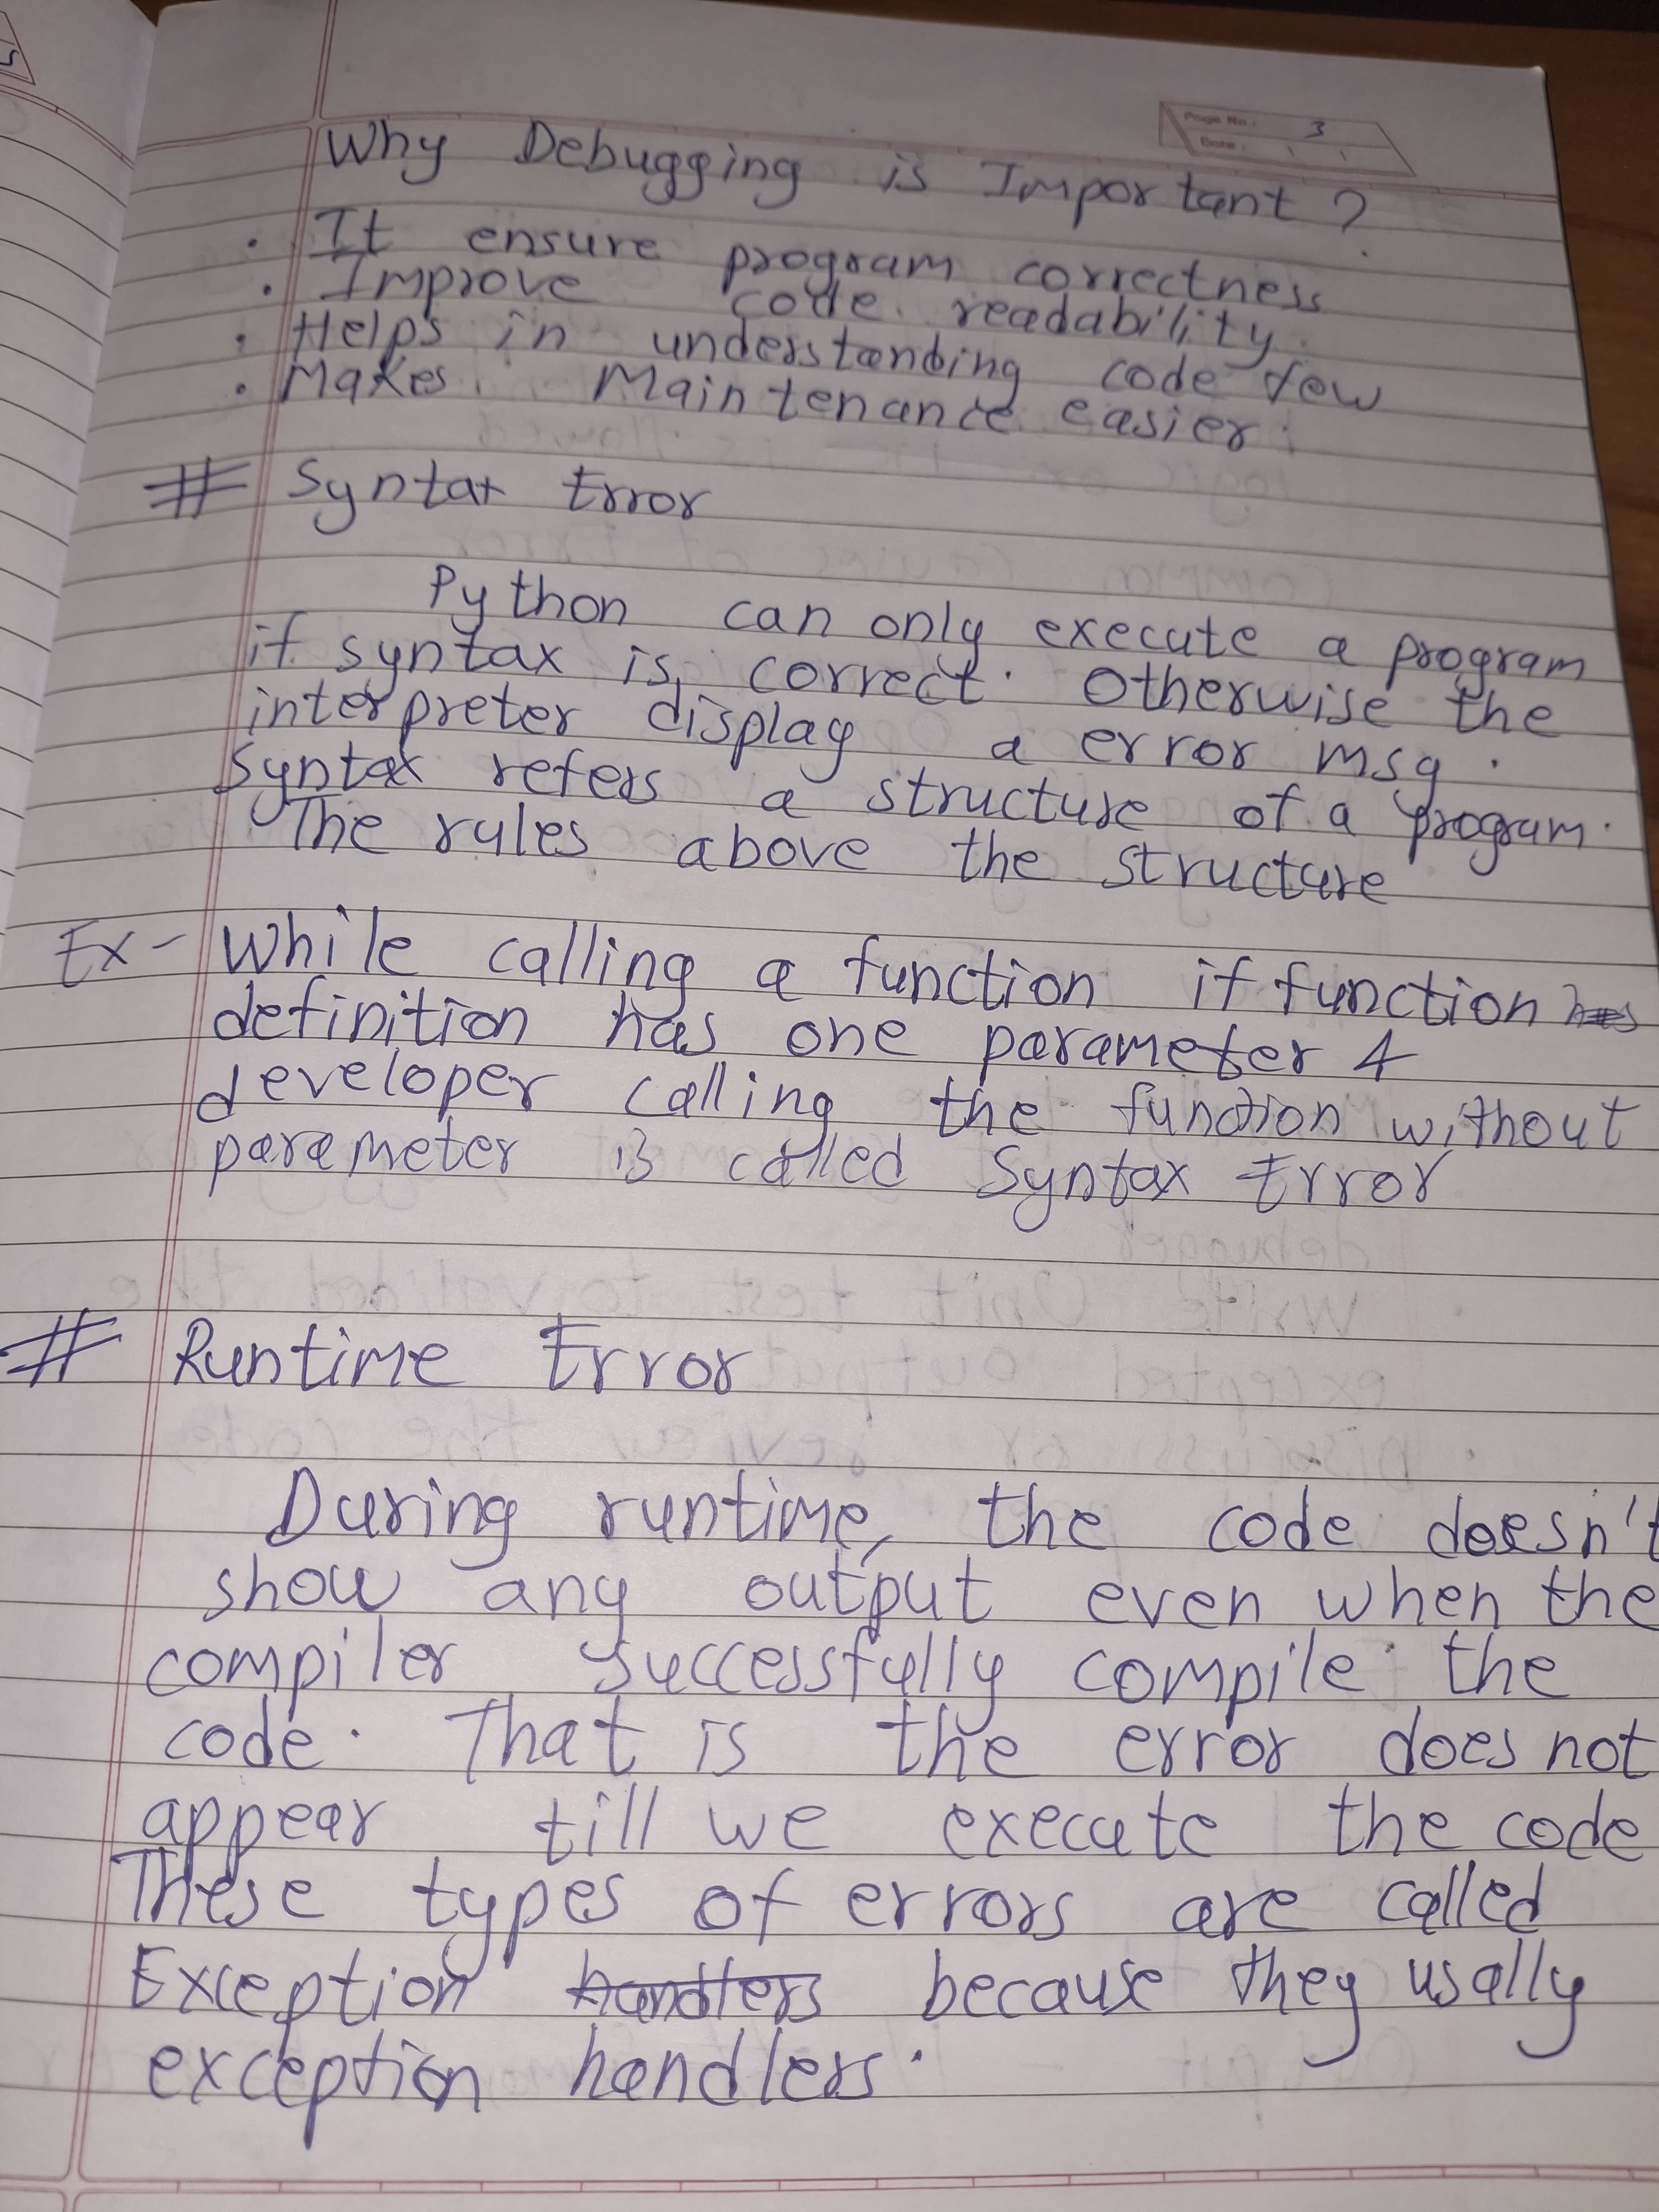 Page No.: 3
Date:
Why Debugging is Important ?
• It ensure program correctness
• Improve code readability.
• Helps in understanding code flow
• Makes Maintenance easier.
# Syntax Error
Python can only execute a program
if syntax is correct. Otherwise the
interpreter display a error msg.
Syntax refers a structure of a program.
The rules above the structure
Ex - While calling a function if function has
definition has one parameter &
developer calling the function without
parameter is called Syntax Error
# Runtime Error
During runtime, the code doesn't
show any output even when the
compiler successfully compile the
code. That is the error does not
appear till we execute the code
These types of errors are called
Exception handlers because they usally
exception handlers.